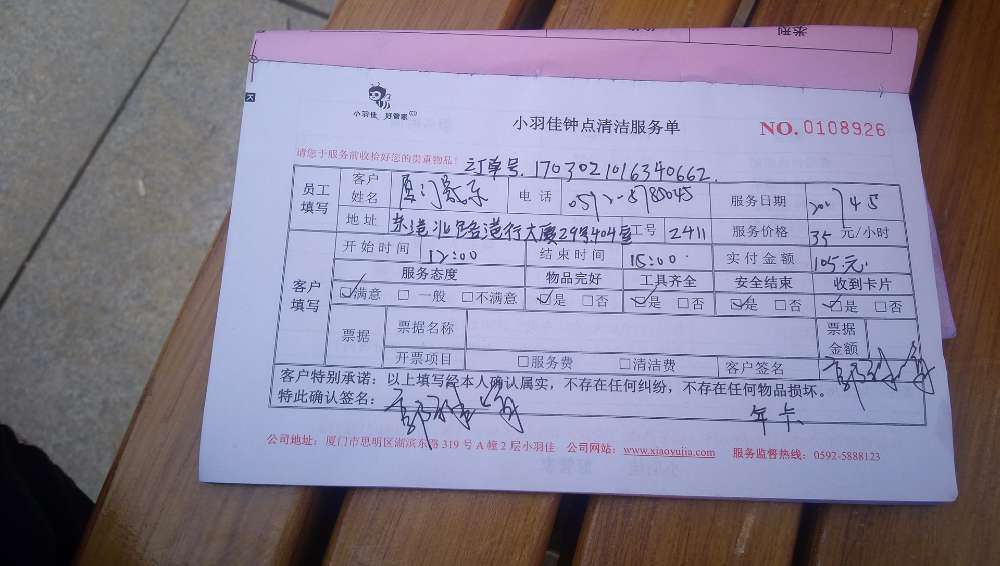 类型
小羽佳 好管家
小羽佳钟点清洁服务单
NO. 0108926
请您于服务前收拾好您的贵重物品！
订单号. 1703021016340662.
员工填写 客户姓名 厦门 电话 服务日期
地址 东港北路港行大厦29号404室 工号 2411 服务价格 35 元/小时
客户填写 开始时间 12:00 结束时间 15:00 实付金额 105元
服务态度 物品完好 工具齐全 安全结束 收到卡片
☑满意 □ 一般 □不满意 ☑是 □否 ☑是 □否 ☑是 □否 ☑是 □否
票据 票据名称 票据金额
开票项目 □服务费 □清洁费 客户签名
客户特别承诺：以上填写经本人确认属实，不存在任何纠纷，不存在任何物品损坏。
特此确认签名：
年卡
公司地址：厦门市思明区湖滨东路 319 号 A 幢 2 层小羽佳 公司网站：www.xiaoyujia.com 服务监督热线：0592-5888123